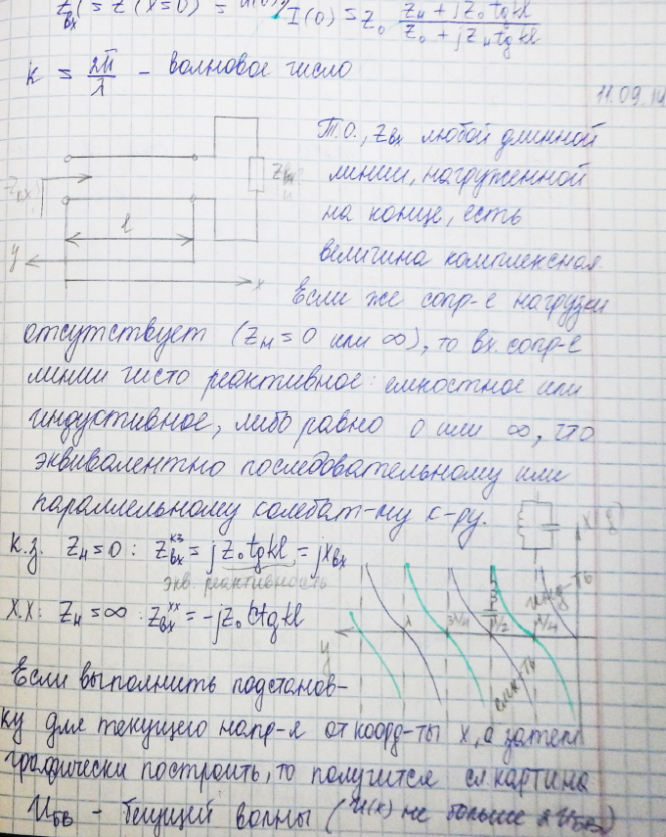 Zвх = Z(x=0) = U(0)/I(0) = Z₀ (Zн + jZ₀ tg kl)/(Z₀ + jZн tg kl)
k = 2π/λ – волновое число
11.09.14
Т.О., Zвх любой длинной
линии, нагруженной
на конце, есть
величина комплексная.
Zвх
Zн
l
y
x
Если же сопр-е нагрузки
отсутствует (Zн = 0 или ∞), то вх. сопр-е
линии чисто реактивное: емкостное или
индуктивное, либо равно 0 или ∞, что
эквивалентно последовательному или
параллельному колебат-му к-ру.
К.З. Zн = 0 : Zвх^кз = jZ₀ tg kl = jXвх
экв. реактивность
Х.Х: Zн = ∞ : Zвх^хх = -jZ₀ ctg kl
инд-ть
y
λ
3λ/4
λ/2
λ/4
емк-ть
Если выполнить подстанов-
ку для текущего напр-я от коорд-ты x, а затем
графически построить, то получится сл. картина
Uбв – бегущей волны (U(x) не больше 2Uбв)